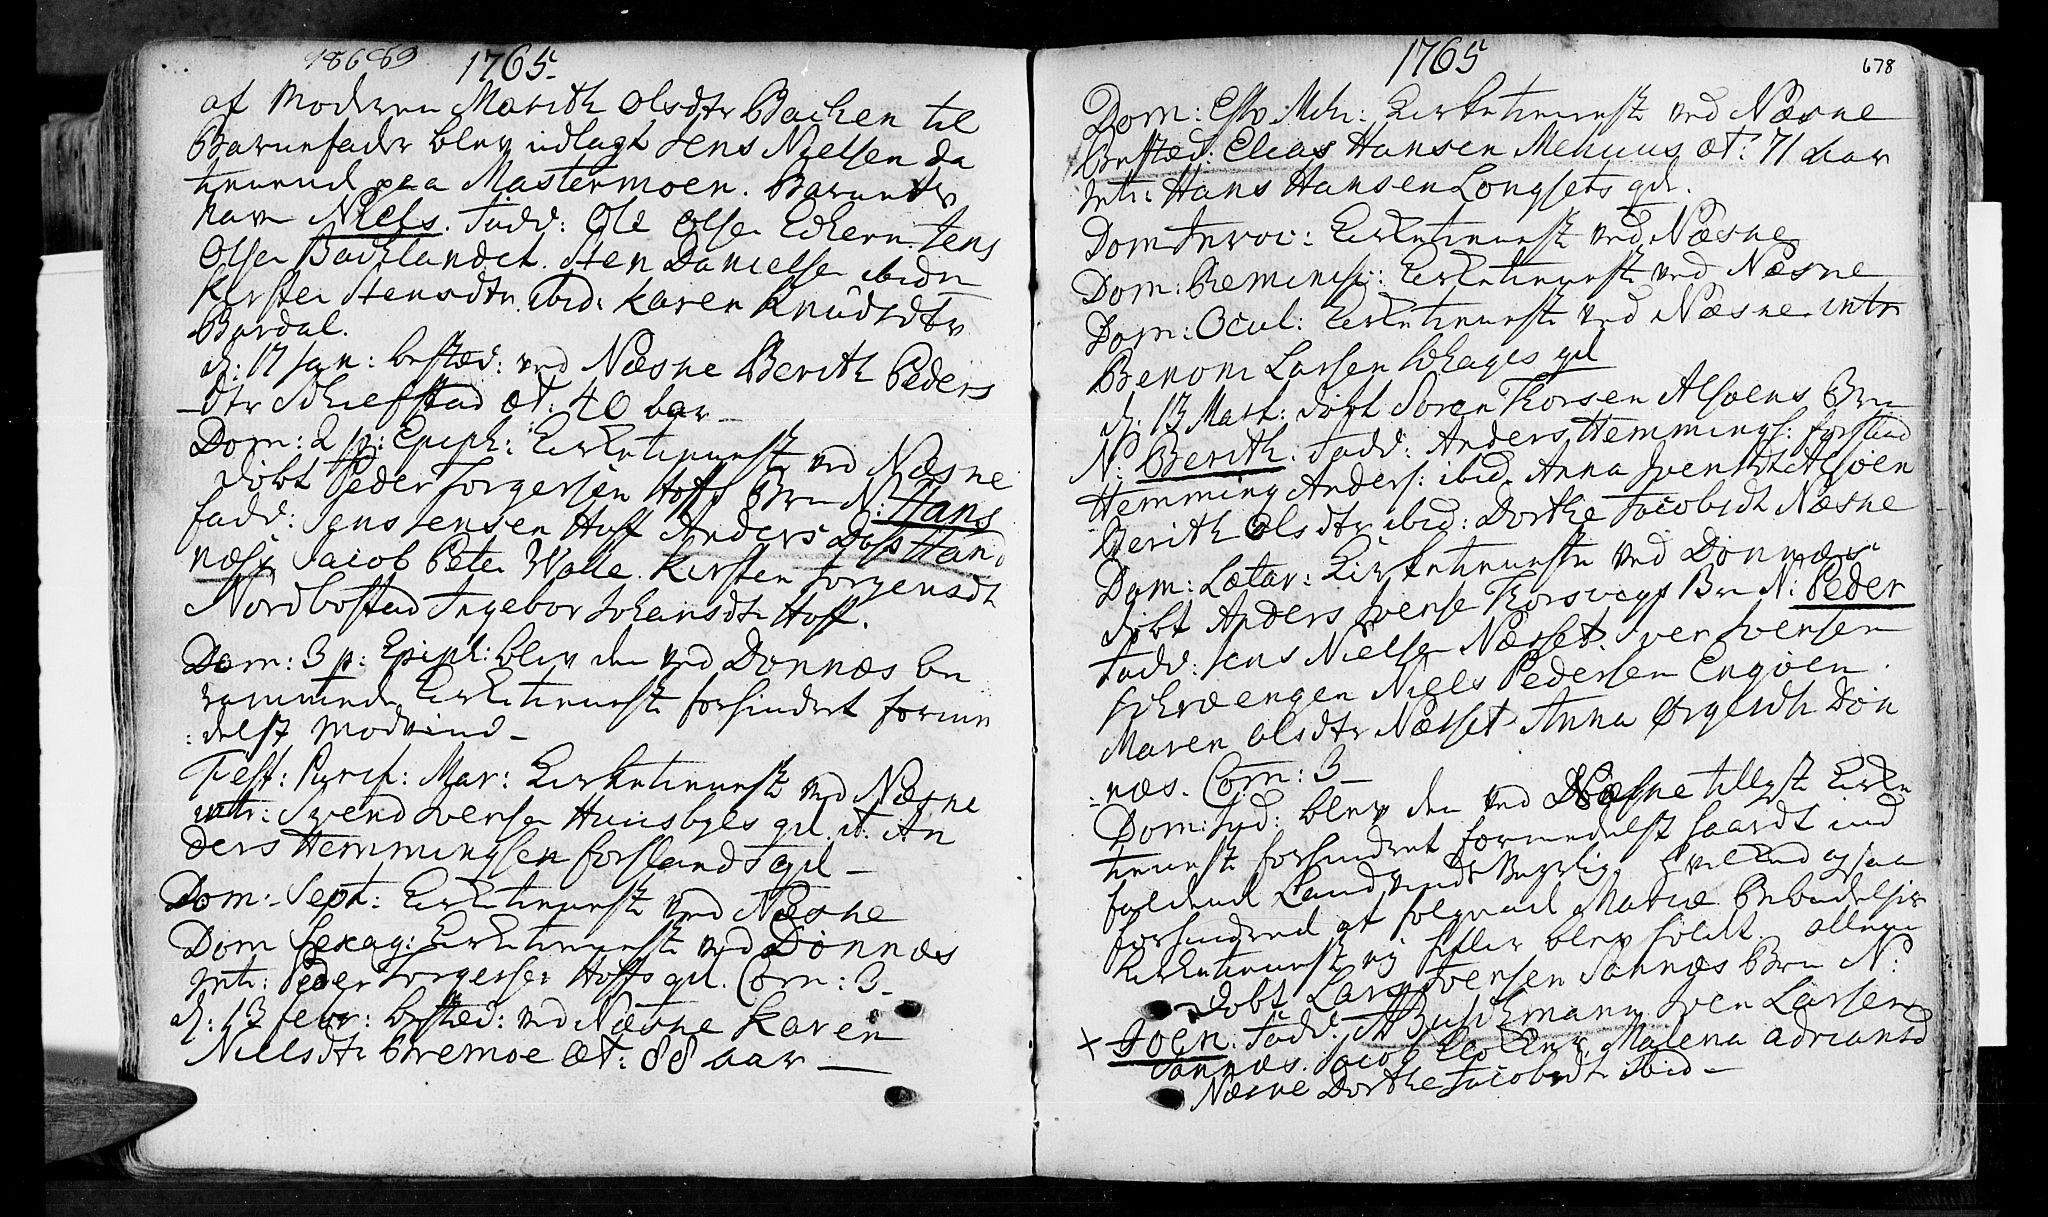 1765
af Moderen Marith Olsdtr Bachen til
Barnefader blev udlagt Jens Nielsen da
tienende paa Mastermoen. Barnetz
Navn Niels. Fadd: Ole Olsen Jens
Olsen Badtlandet. Sten Danielsen ibidn
Kirsten Stensdtr ibid: Karen Knudsdtr
Bardal.
d: 17 Jan: bested: ved Næsne Berith Peders
dtr Schiefstad æt: 40 aar
Dom: 2 p: Epiph: Kirketieneste ved Næsne
døbt Peder Jørgersen Hoffs Brn N: Hans
fadd: Jens Jensen Hoff Anders Dass Hand
næsø Jacob Peter Walle. Kirsten Jørgensdt
Nordbostad Ingebor Johansdtr Hoff.
Dom: 3 p: Epiph: blev den ved Dønnæs be
rammede Kirketieneste forhindret forme
:delst Modvind
Fest: Purif: Mar: Kirketieneste ved Næsne
intr: Svend Iversen Huusbyes qvl. it: An
ders Hemmingsen Forslands qvl
Dom: Sept: Kirketieneste ved Næsne
Dom Sexag: Kirketieneste ved Dønnæs
Intr: Peder Jørgersen Hoffs qvl. Com: 3
d: 13 febr: bested: ved Næsne Karen
Nielsdtr Bremoe æt: 88 aar
1765
678
Dom: Esto Mihi: Kirketieneste ved Næsne
Bested: Elias Hansen Mehuus æt: 71 aar
Intr: Hans Hansen Longsets qvl.
Dom Invoc: Kirketieneste ved Næsne
Dom: Reminisc: Kirketieneste ved Næsne
Dom: Ocul: Kirketieneste ved Næsne intr
Benoni Larsen qvl
d: 13 Mart: døbt Søren Thorsen Alsøens Brn
N: Berith. Fadd: Anders Hemmings: Forsland
Hemming Anders: ibid. Anna Svensdt Alsøen
Berith Olsdtr ibid: Dorthe Jacobsdt Næsne
Dom: Lætar: Kirketieneste ved Dønnæs
døbt Anders Ivers: Thorsvags Brn N: Peder
Fadd: Jens Nielsen Næsset. Iver Iversen
Niels Pedersen Engøen
Maren Olsdtr Næsset Anna Døn
:næs. Com: 3
Dom: Jud: blev den ved Næsne tillyste Kirke
tieneste forhindret formedelst haardt ind
faldend Land ogsaa
forhindred at følgende Mariæ Bebudelses
Kirketieneste ej heller blev holdt. allene
døbt Lars Iversen Sannæs Brn N:
x Joen. Fadd: Iver Larsen
Sannæs. Jacob Malena Adriansd
Næsne Dorthe Jacobsdtr ibid